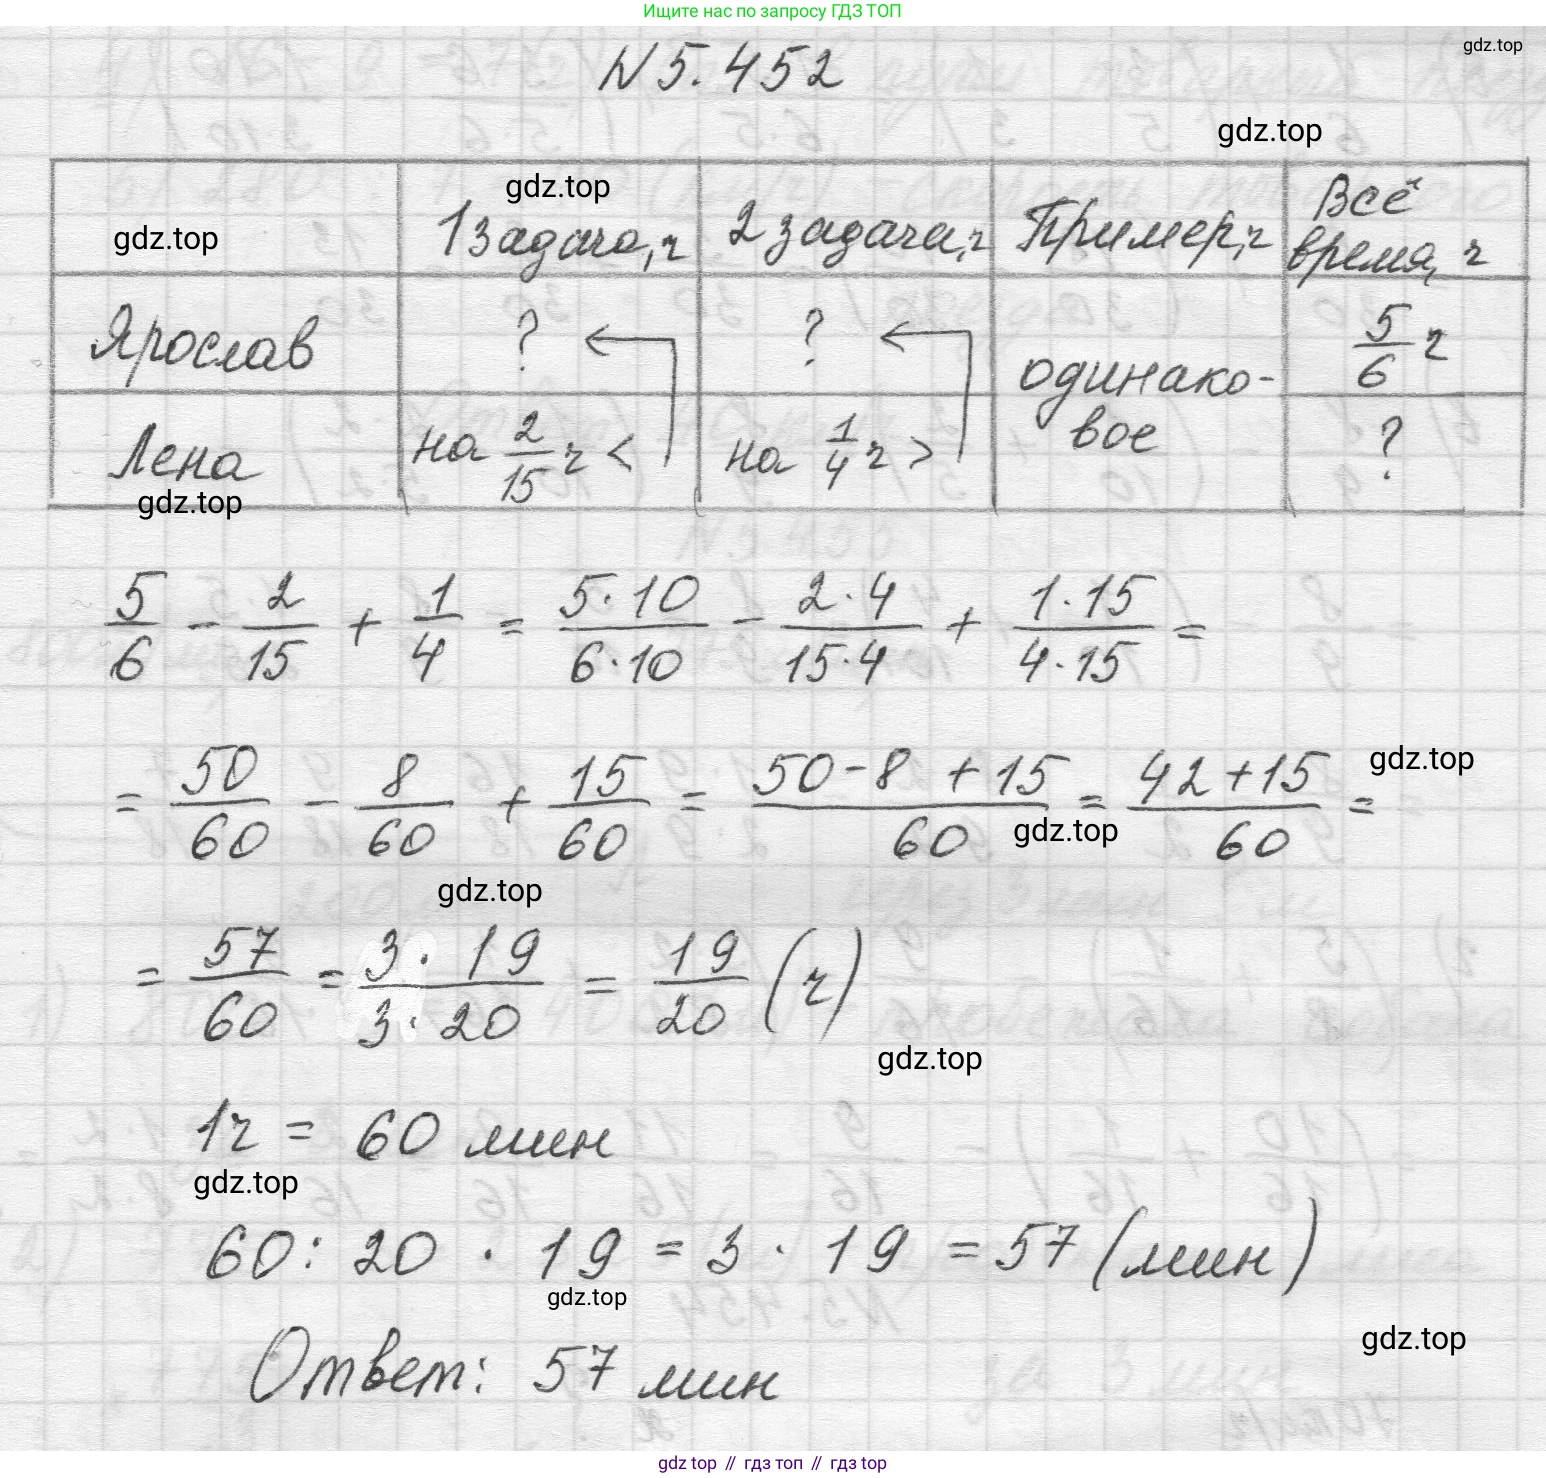 Ищите нас по запросу ГДЗ ТОП
gdz.top
N 5.452
gdz.top
gdz.top
gdz.top
1 задача, ч
2 задача, ч
Пример, ч
Всё время, ч
Ярослав
?
?
одинако-
вое
5/6 ч
Лена
на 2/15 ч <
на 1/4 ч >
?
gdz.top
5/6 - 2/15 + 1/4 = 5·10/6·10 - 2·4/15·4 + 1·15/4·15 =
gdz.top
= 50/60 - 8/60 + 15/60 = 50-8+15/60 = 42+15/60 =
gdz.top
gdz.top
= 57/60 = 3·19/3·20 = 19/20 (ч)
gdz.top
1ч = 60 мин
gdz.top
60 : 20 · 19 = 3 · 19 = 57 (мин)
gdz.top
gdz.top
Ответ: 57 мин
gdz top // гдз топ // гдз top